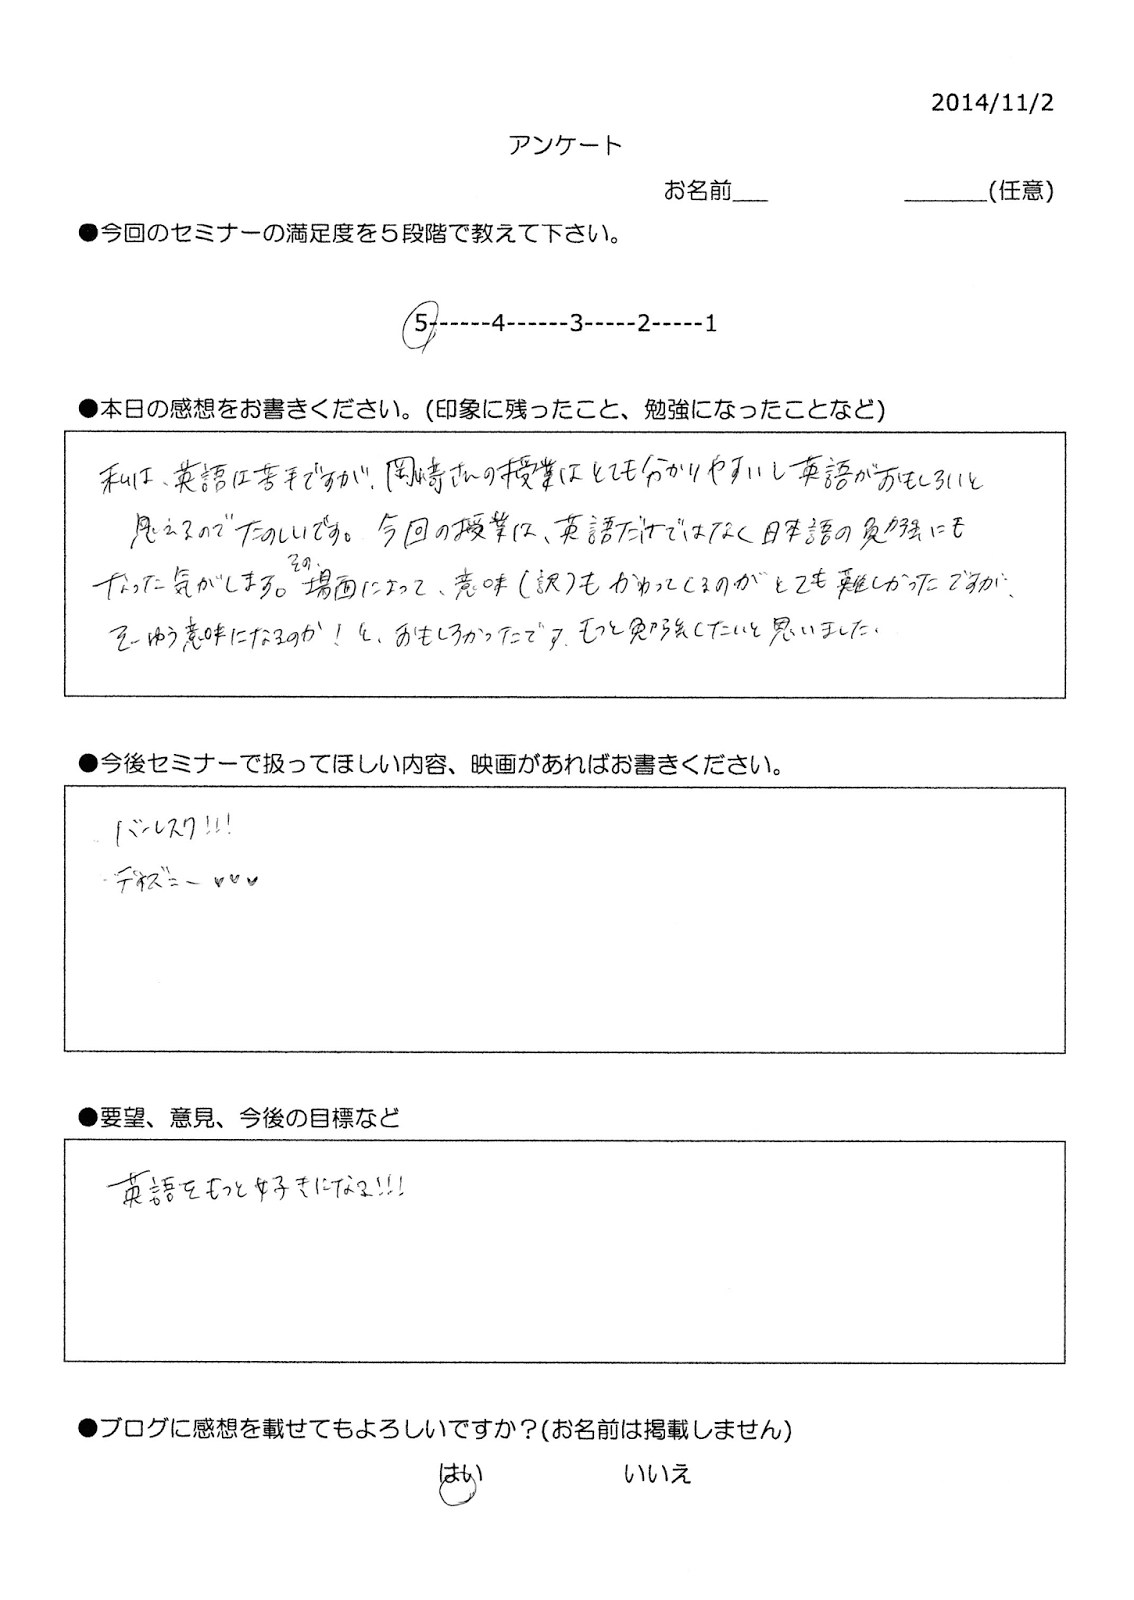 2014/11/2
アンケート
お名前___ ______(任意)
●今回のセミナーの満足度を5段階で教えて下さい。
5------4------3-----2-----1
●本日の感想をお書きください。(印象に残ったこと、勉強になったことなど)
私は、英語は苦手ですが、岡崎さんの授業はとても分かりやすいし英語がおもしろいと
思えるのでたのしいです。今回の授業は、英語だけではなく日本語の勉強にも
なった気がします。その場面によって、意味(訳)もかわってくるのがとても難しかったですが、
そーゆう意味になるのか!と、おもしろかったです。もっと勉強したいと思いました。
●今後セミナーで扱ってほしい内容、映画があればお書きください。
・バーレスク!!!
・ディズニー♥♥♥
●要望、意見、今後の目標など
英語をもっと好きになる!!!
●ブログに感想を載せてもよろしいですか?(お名前は掲載しません)
はい いいえ